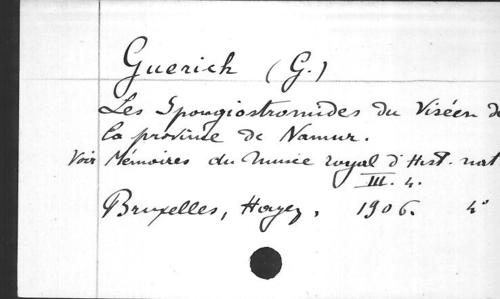 Guerich (G.)
Les Spongiostromides du Viséen de
la province de Namur.
Voir Mémoires du Musée royal d'Hist. nat
III. 4.
Bruxelles, Hayez, 1906. 4°